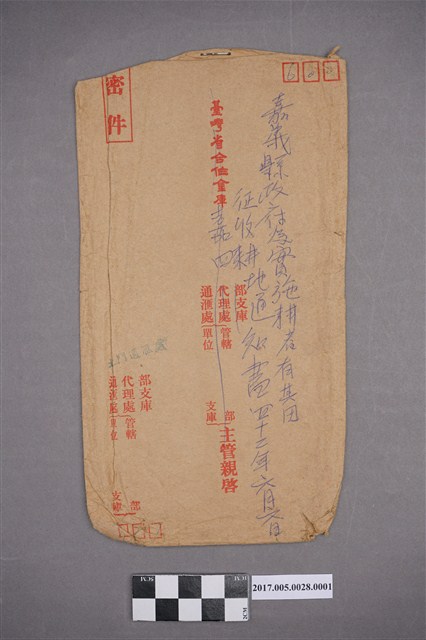 嘉義縣政府為實施耕者有其田
征收耕地通知書四十二年六月六日
臺灣省合作金庫嘉
部支庫
代理處管轄
通滙處單位
部
支庫
主管親啓
密件
部支庫
代理處管轄
通滙處單位
部
支庫
2017.005.0028.0001